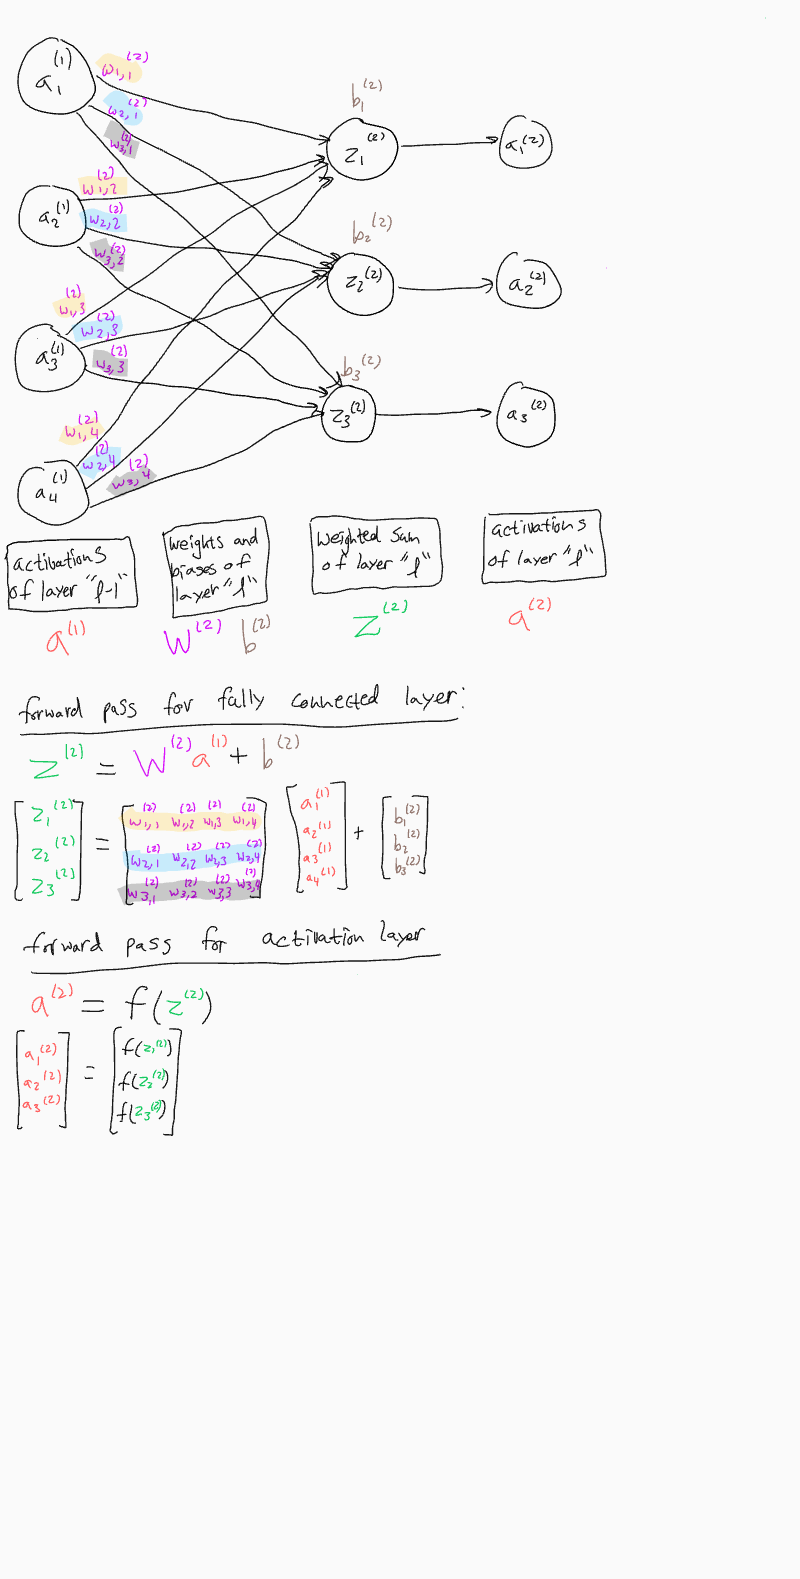 a₁⁽¹⁾
w₁,₁⁽²⁾
w₂,₁⁽²⁾
w₃,₁⁽²⁾
b₁⁽²⁾
z₁⁽²⁾
a₁⁽²⁾
a₂⁽¹⁾
w₁,₂⁽²⁾
w₂,₂⁽²⁾
w₃,₂⁽²⁾
b₂⁽²⁾
z₂⁽²⁾
a₂⁽²⁾
a₃⁽¹⁾
w₁,₃⁽²⁾
w₂,₃⁽²⁾
w₃,₃⁽²⁾
b₃⁽²⁾
z₃⁽²⁾
a₃⁽²⁾
a₄⁽¹⁾
w₁,₄⁽²⁾
w₂,₄⁽²⁾
w₃,₄⁽²⁾
activations
of layer "l-1"
weights and
biases of
layer "l"
weighted sum
of layer "l"
activations
of layer "l"
a⁽¹⁾
W⁽²⁾ b⁽²⁾
z⁽²⁾
a⁽²⁾
forward pass for fully connected layer:
z⁽²⁾ = W⁽²⁾ a⁽¹⁾ + b⁽²⁾
z₁⁽²⁾
z₂⁽²⁾
z₃⁽²⁾
=
w₁,₁⁽²⁾ w₁,₂⁽²⁾ w₁,₃⁽²⁾ w₁,₄⁽²⁾
w₂,₁⁽²⁾ w₂,₂⁽²⁾ w₂,₃⁽²⁾ w₂,₄⁽²⁾
w₃,₁⁽²⁾ w₃,₂⁽²⁾ w₃,₃⁽²⁾ w₃,₄⁽²⁾
a₁⁽¹⁾
a₂⁽¹⁾
a₃⁽¹⁾
a₄⁽¹⁾
+
b₁⁽²⁾
b₂⁽²⁾
b₃⁽²⁾
forward pass for activation layer
a⁽²⁾ = f(z⁽²⁾)
a₁⁽²⁾
a₂⁽²⁾
a₃⁽²⁾
=
f(z₁⁽²⁾)
f(z₂⁽²⁾)
f(z₃⁽²⁾)